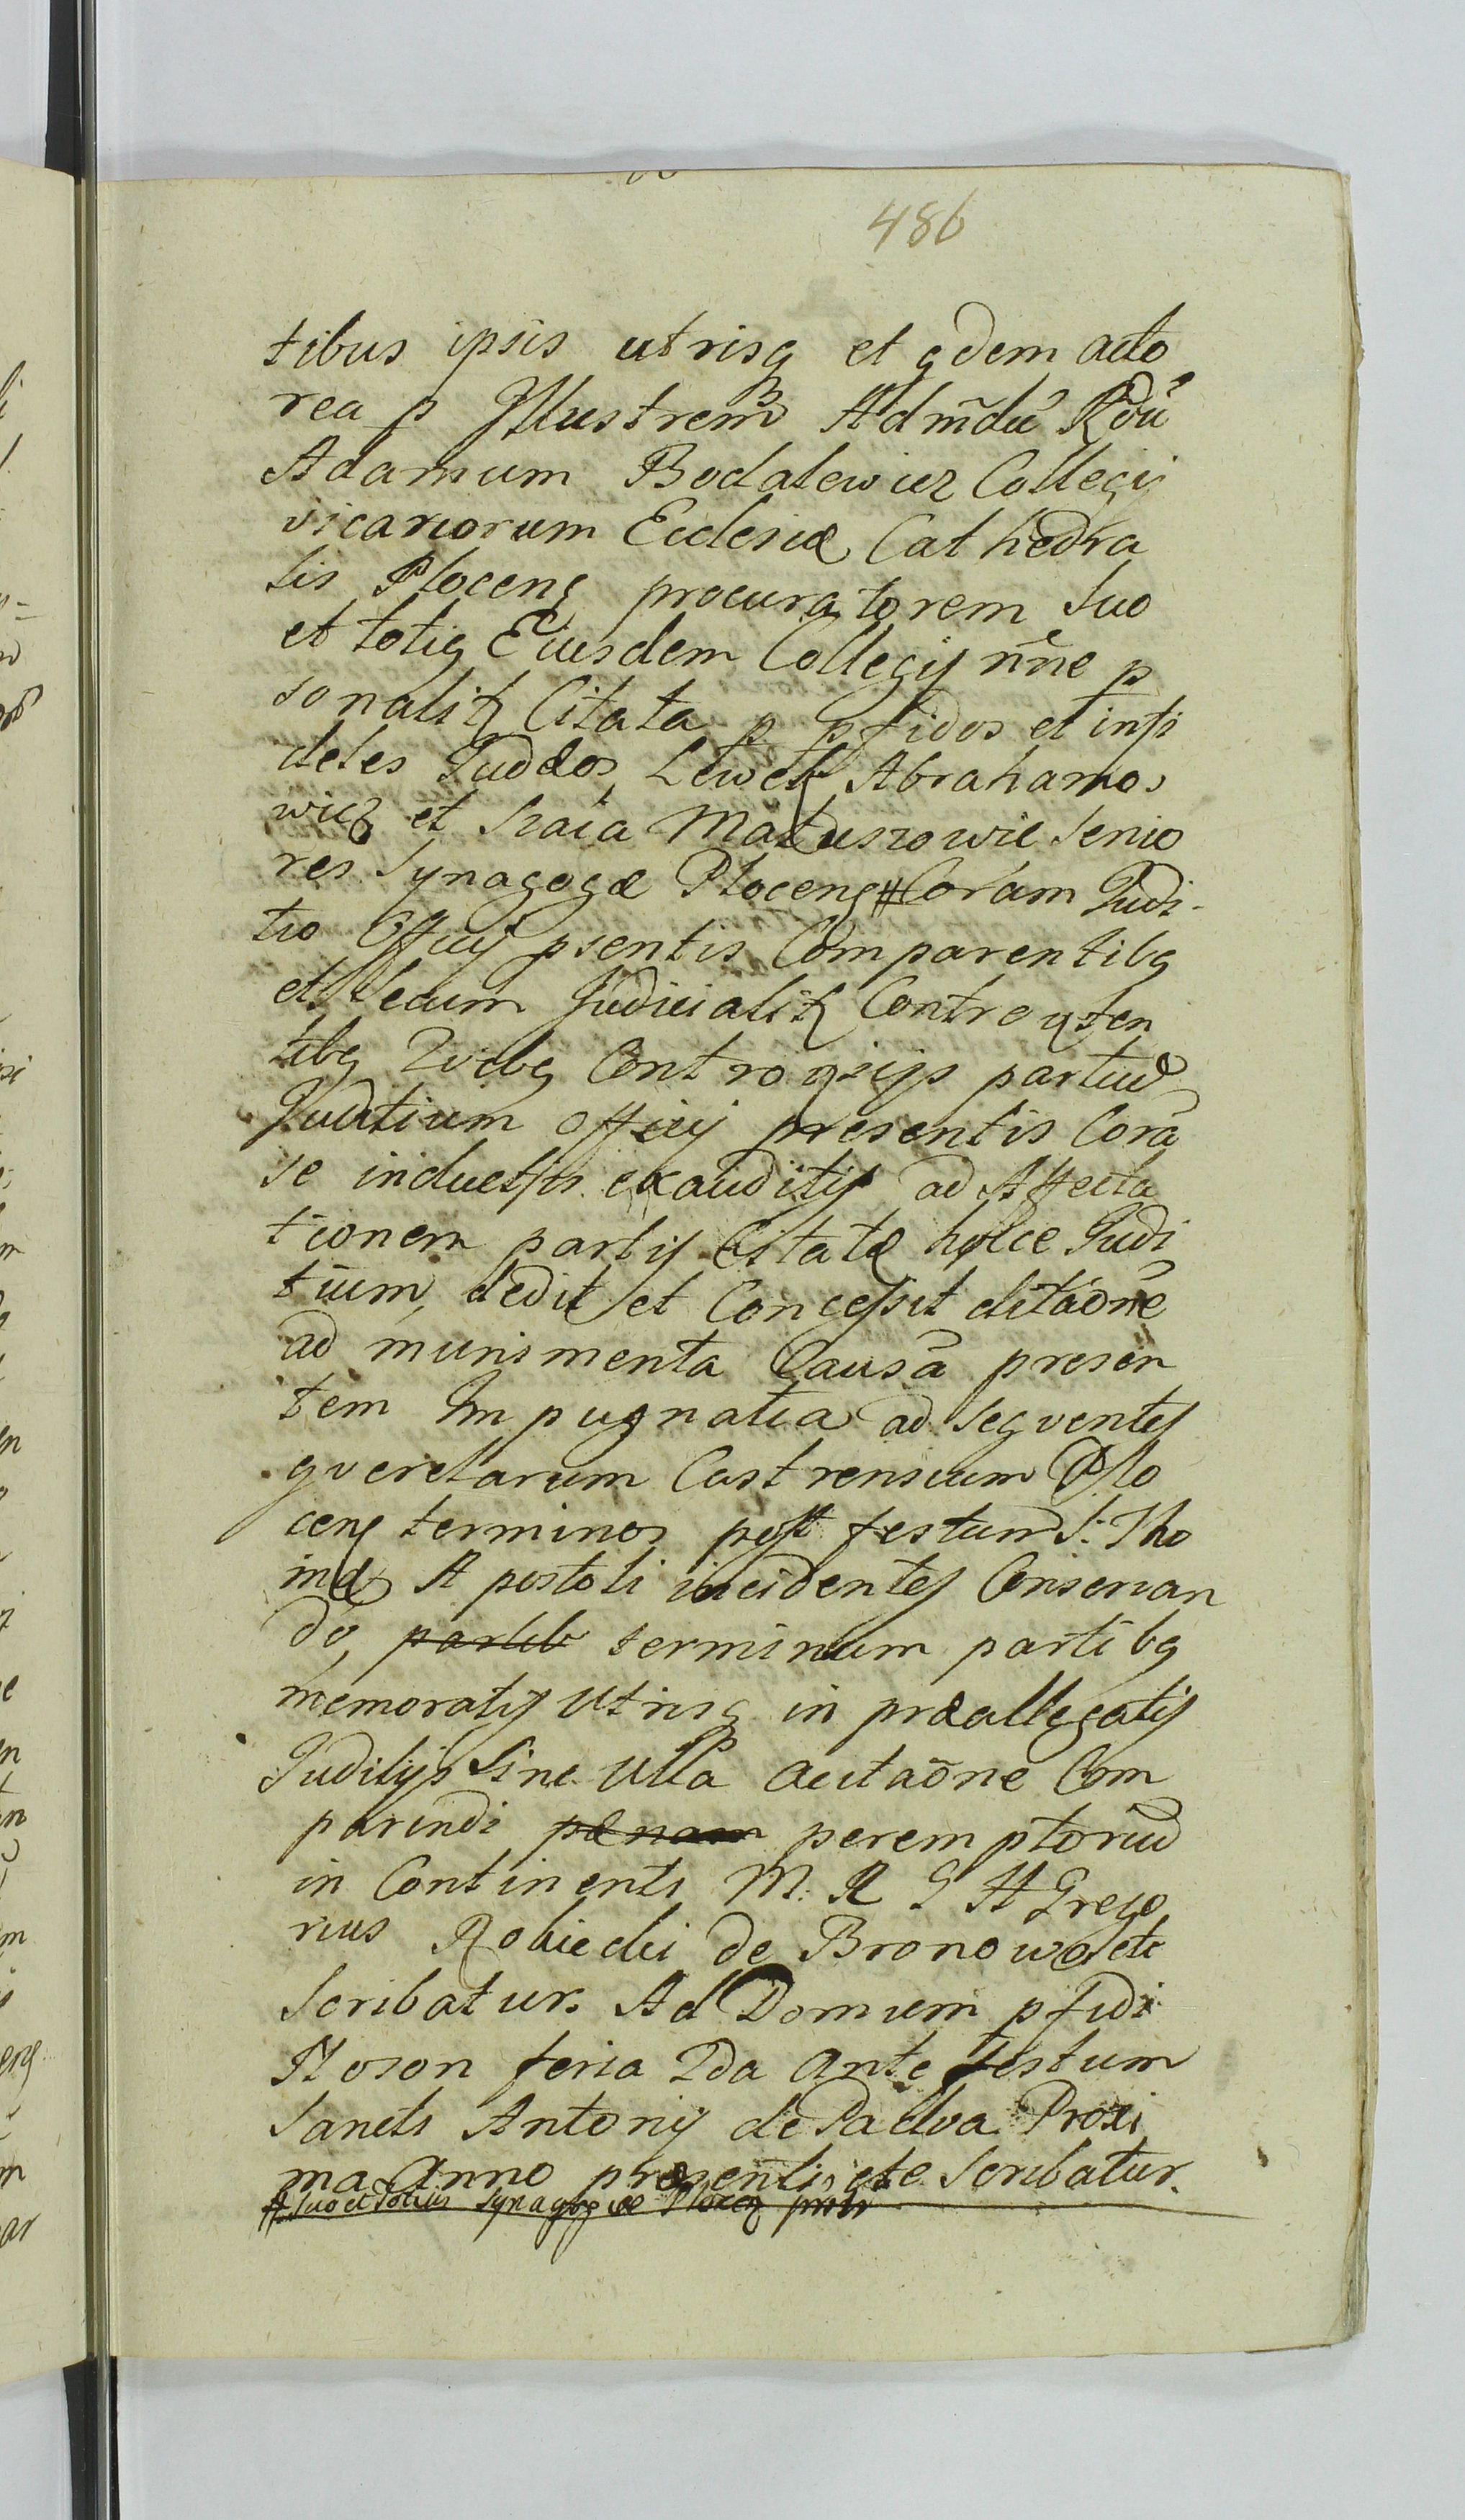 486
tibus ipsis utrisq et qdem acto
rea p Illustrem Admdū Rdū
Adamum Bodalewicz Collegij
vicariorum Ecclesiæ Cathedra
lis Plocens procuratorem suo
et totiq Eiusdem Collegij nne p
sonalit Citata p pfidos et infi
deles Judæos Lewek Abrahamo
wicz et Szaia Matuszowic Senio
res Synagogæ Plocens # Coram Judi-
tio Officij psentis Comparentibq
et Secum Judicialit Controverten
tibq Quibq Controversijs partium
Juditium officij presentis Corā
se inductis exauditis ad Affecta
tionem partis Citatæ hocce Judi
tium, dedit et Concessit dilaōnē
ad munimenta Causā presen
tem Impugnatia ad Seqventes
qverelarum Castrensium Plo
cens terminos post festum S. Tho
mæ Apostoli incidentes Conservan
do, partib terminum partibq
memoratis Utrisq in præallegatis
Juditijs Sine Ulla acitaōne Com
parendi pænam peremptorium
in Continenti M. R G A Grego
rius Robiecki de Bronowo etc
Scribatur. Ad Domum pfidi
Moson feria 2da Ante festum
Sancti Antonij de Padva Proxi
ma Anno præsenti, etc Scribatur.
# Suo et totius Synagogæ Plocen